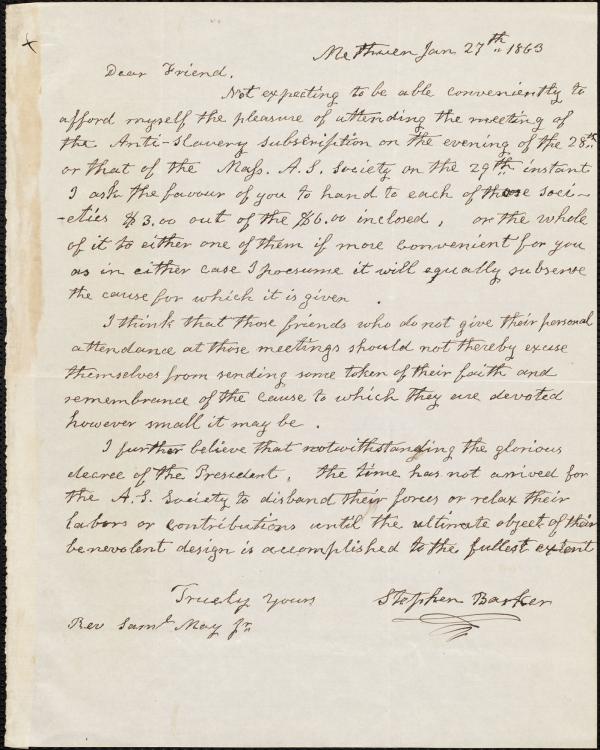 x
Methuen Jan 27th 1863
Dear Friend,
Not expecting to be able conveniently to
afford myself the pleasure of attending the meeting of
the Anti-Slavery subscription on the evening of the 28th
or that of the Mass. A.S. Society on the 29th instant
I ask the favour of you to hand to each of those soci-
-eties $3.00 out of the $6.00 inclosed, or the whole
of it to either one of them if more convenient for you
as in either case I presume it will equally subserve
the cause for which it is given.
I think that those friends who do not give their personal
attendance at those meetings should not thereby excuse
themselves from sending some token of their faith and
remembrance of the cause to which they are devoted
however small it may be.
I further believe that notwithstanding the glorious
decree of the President, the time has not arrived for
the A.S. Society to disband their forces or relax their
labors or contributions until the ultimate object of their
benevolent design is accomplished to the fullest extent
Truely Yours Stephen Barker
Rev Saml May Jr